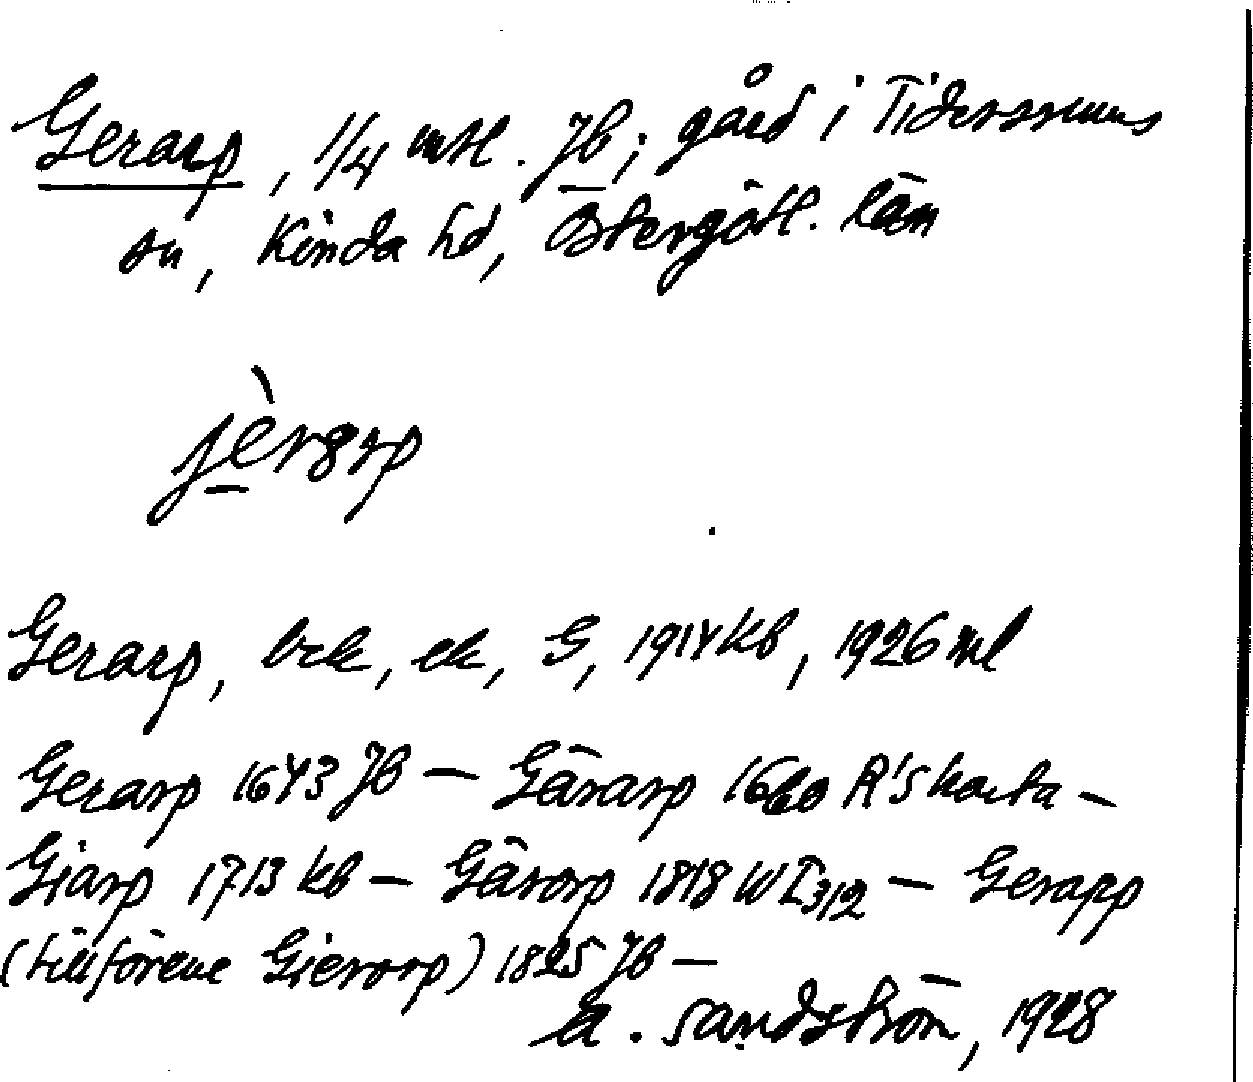 Gerarp, 1/4 mtl. Jb; gård i Tidersrums
sn, Kinda hd, Östergötl. län
jèrarp
Gerarp, brk, ek, G, 1914 kb, 1926 ml
Gerarp 1643 Jb — Gärarp 1660 R's karta —
Giarp 1713 kb — Gärorp 1818 W I312 — Gerapp
(tillförene Gierorp) 1825 Jb —
A. Sandström, 1928